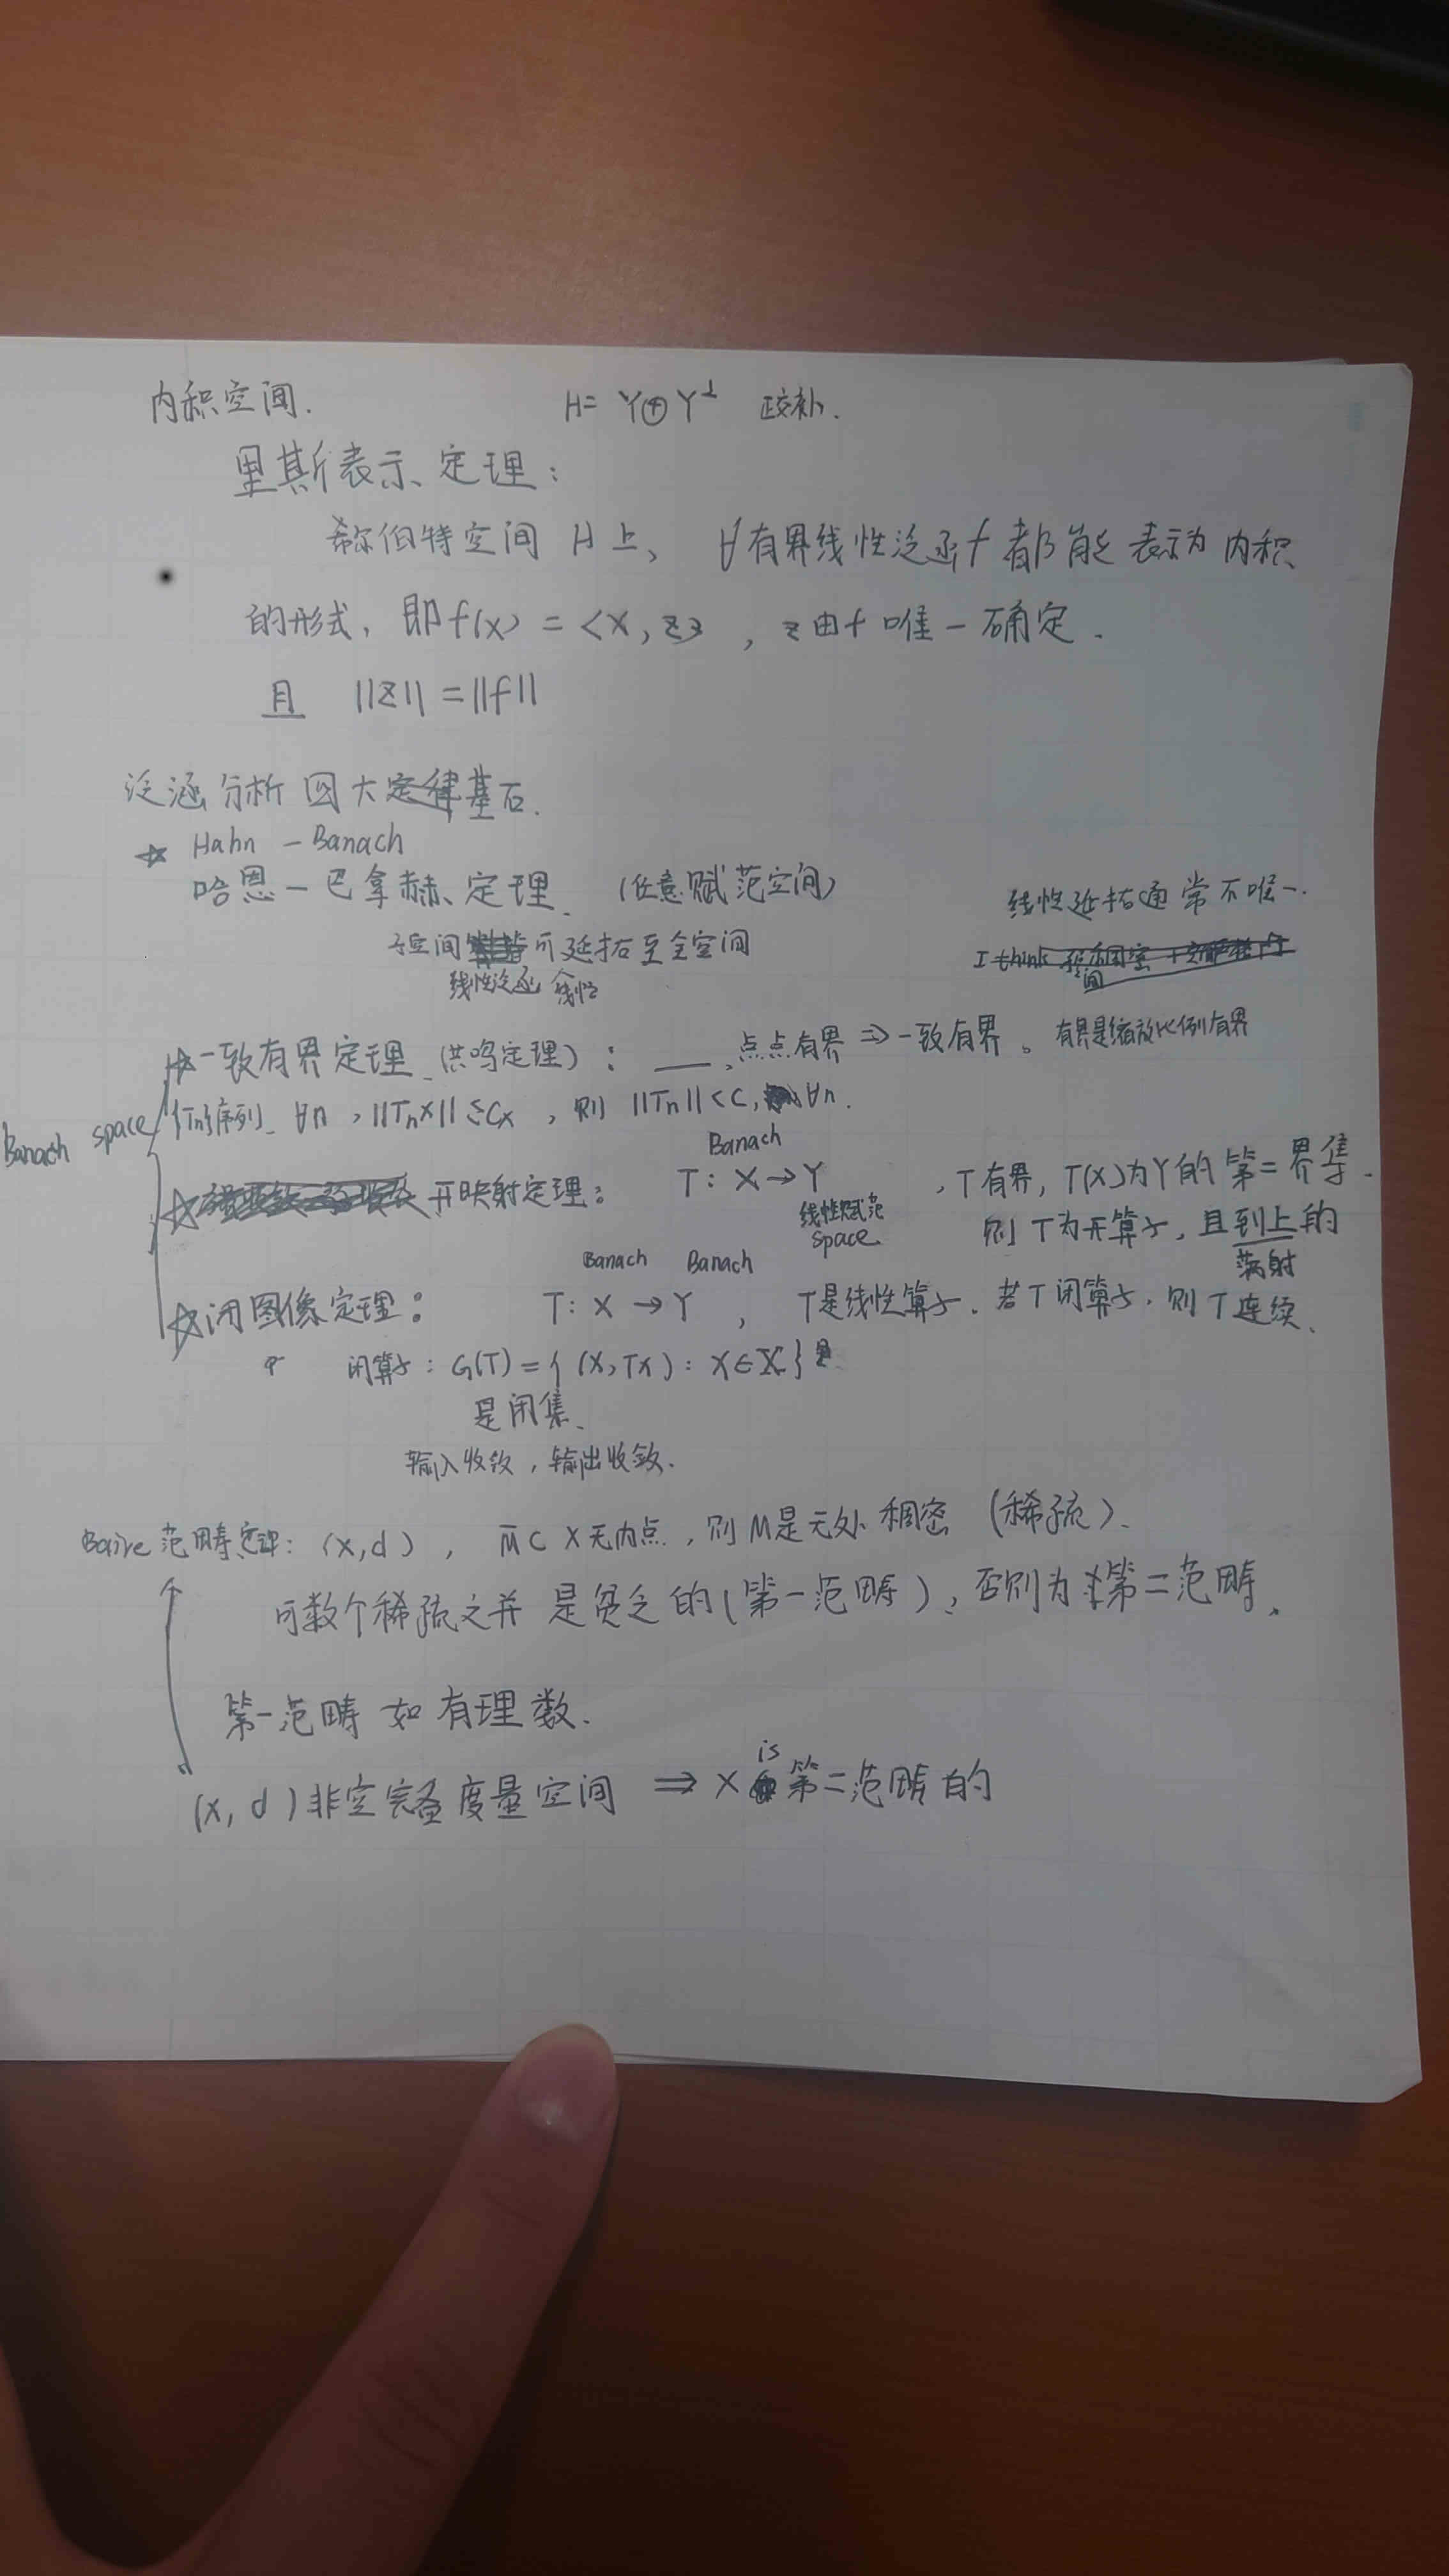 内积空间.
H = Y⊕Y^⊥ 正交补.
里斯表示定理:
希尔伯特空间 H 上, ∀有界线性泛函 f 都能表示为 内积
的形式, 即 f(x) = <x, z> , z 由 f 唯一确定.
且 ||z|| = ||f||
泛涵分析 四大定律基石.
☆ Hahn - Banach
哈恩-巴拿赫定理. (任意赋范空间)
线性延拓通常不唯一.
子空间 可延拓至全空间
I think
线性泛函 线性
☆一致有界定理 (共鸣定理) : ——, 点点有界 ⇒ 一致有界 。 有界是缩放比例有界
Banach space
{Tn}序列. ∀n , ||Tnx|| ≤ Cx , 则 ||Tn|| < C, ∀n.
Banach
☆ 开映射定理: T: X → Y , T 有界, T(X)为Y的 第二界集.
线性赋范 space
则 T为开算子, 且到上的
满射
Banach Banach
☆闭图像定理: T: X → Y , T是线性算子. 若T闭算子, 则 T 连续.
闭算子: G(T) = { (x, Tx) : x ∈ X }
是闭集.
输入收敛, 输出收敛.
Baire 范畴定理: (X, d) , M̄ ⊂ X 无内点, 则 M是无处稠密 (稀疏).
可数个稀疏之并 是贫乏的 (第一范畴), 否则为第二范畴.
第一范畴 如 有理数.
is
(X, d) 非空完备度量空间 ⇒ X 第二范畴的